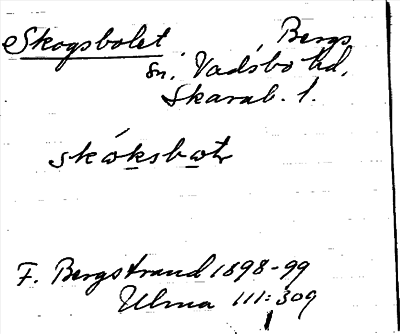 Skogsbolet, Bergs
sn. Vadsbo hd,
Skarab. l.
skóksbωtr
F. Bergstrand 1898-99
Ulma 111:309